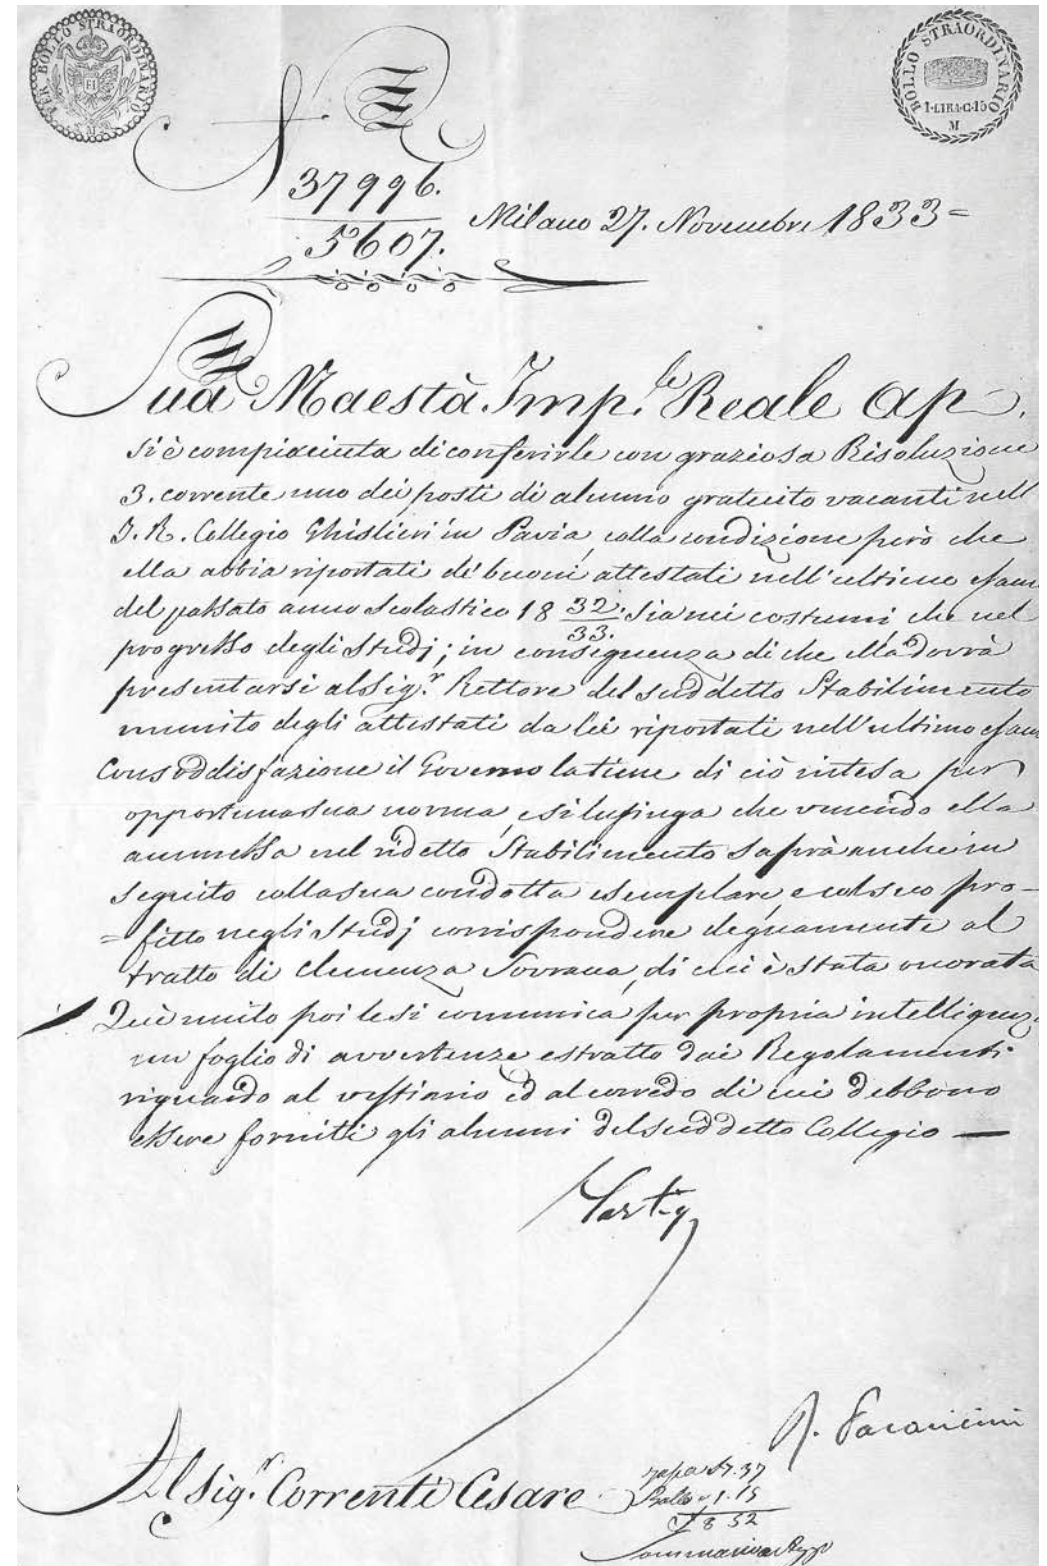 PER BOLLO STRAORDINARIO
FI
M
BOLLO STRAORDINARIO
1-LIRA-C-15
M
N
37996.
5607.
Milano 27. Novembre 1833=
Sua Maestà Imp.le Reale Ap.
si è compiaciuta di conferirle con graziosa Risoluzione
3. corrente uno dei posti di alunno gratuito vacanti nell
I. R. Collegio Ghislieri in Pavia, colla condizione però che
ella abbia riportati de' buoni attestati nell'ultimo esam
del passato anno scolastico 18 32/33. sia nei costumi, che nel
progresso degli Studj; in conseguenza di che ella dovrà
presentarsi al Sig.r Rettore del suddetto Stabilimento
munito degli attestati da lei riportati nell'ultimo esam
Con soddisfazione il Governo la tiene di ciò intesa per
opportuna sua norma, e si lusinga che venendo ella
ammessa nel ridetto Stabilimento saprà anche in
seguito colla sua condotta esemplare, e col suo pro-
=fitto negli Studj corrispondere degnamente al
tratto di clemenza Sovrana, di cui è stata onorata
Quì unito poi le si comunica per propria intelligenz
un foglio di avvertenze estratto dai Regolamenti
riguardo al vestiario ed al corredo di cui debbono
essere forniti gli alunni del suddetto Collegio —
Hartig
Al Sig.r Correnti Cesare
37
Bollo 1. 15
8 52